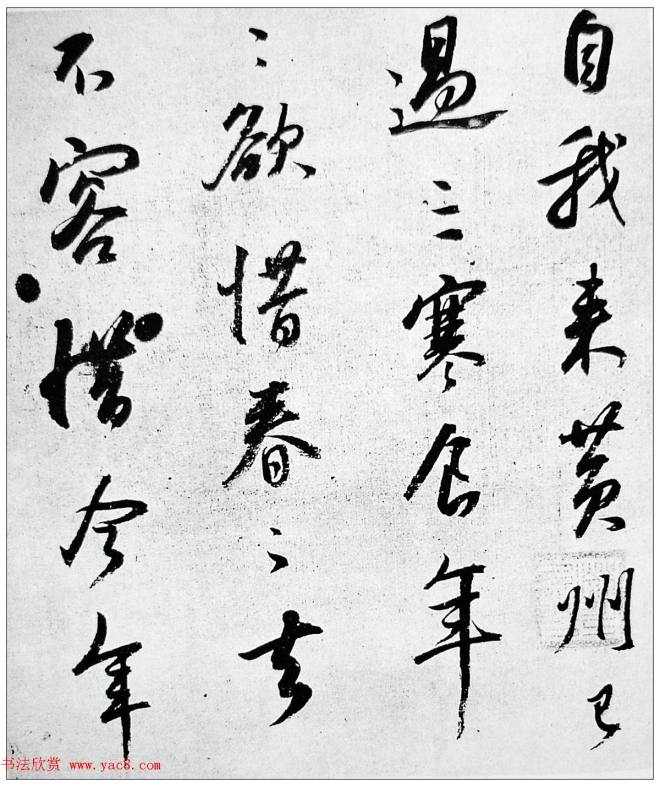 自我来黄州已
過三寒食年
〻欲惜春〻去
不容惜今年
书法欣赏 www.yac8.com